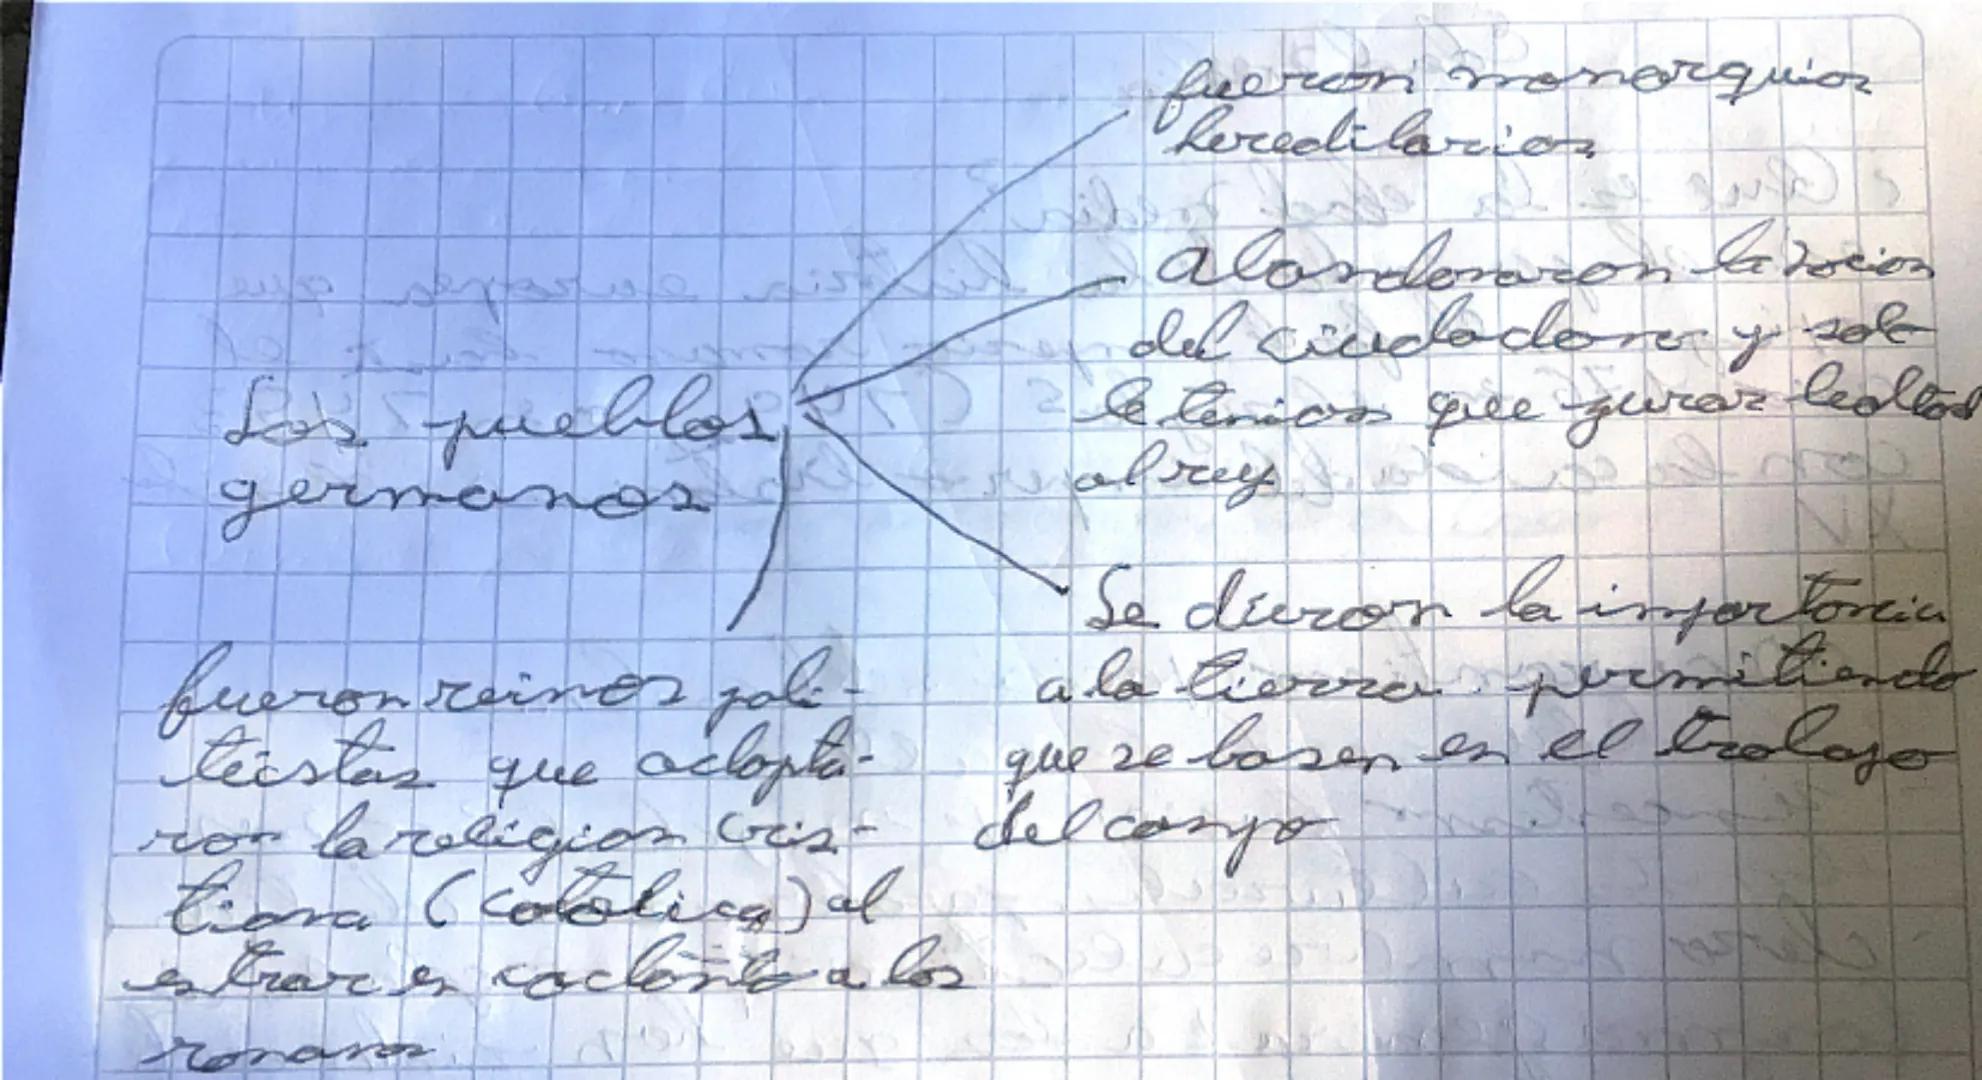 Los pueblos
germanos
fueron monarquias
hereditarias
Abandonaron la nocion
del ciudadano y solo
le tenian que jurar lealtad
al rey
Se dieron la importancia
a la tierra permitiendo
que se basen en el trabajo
del campo
fueron reinos poli-
teistas que adopta-
ron la religion cris-
tiana (catolica) al
entrar en a los
romanos